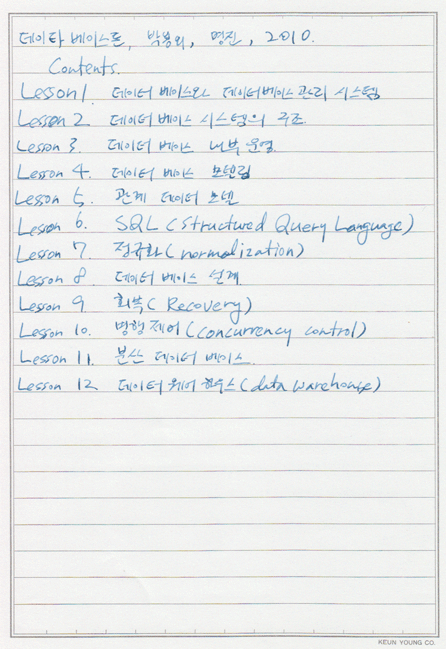 데이타 베이스론, 박용외, 명진, 2010.
Contents.
Lesson 1 데이터 베이스와 데이터베이스 관리 시스템
Lesson 2 데이터베이스 시스템의 구조
Lesson 3. 데이터 베이스 내부 운영.
Lesson 4. 데이터 베이스 모델링
Lesson 5. 관계 데이터 모델
Lesson 6. SQL (Structured Query Language)
Lesson 7. 정규화(normalization)
Lesson 8 데이터 베이스 설계.
Lesson 9 회복(Recovery)
Lesson 10. 병행제어(concurrency control)
Lesson 11. 분산 데이터 베이스.
Lesson 12 데이터 웨어 하우스(data warehouse)
KEUN YOUNG CO.